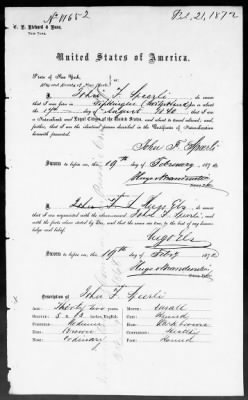 No 11652
Feb. 21, 1872
C. B. Richard & Boas,
New York.
United States of America.
State of New York,
City and County of New York,
I, John F. Speerli do swear
that I was born in (Switzerland) on
the 17th day of August 1840 that I am
a Naturalized and Loyal Citizen of the United States, and about to travel abroad; and,
further, that I am the identical person described in the Certificate of Naturalization
herewith presented.
John F. Speerli
Sworn to before me, this 19th day of February 1872
Hugo
I, Hugo Els do swear
that I am acquainted with the above-named John F. Speerli, and
with the facts above stated by him, and that the same are true to the best of my know-
ledge and belief.
Hugo Els
Sworn to before me, this 19th day of Feby 1872
Hugo
Description of John F. Speerli
Age: Thirty two years,
Stature: 5 feet 3 inches, English,
Forehead: Medium
Eyes: Brown
Nose: Ordinary
Mouth: Small
Chin: Round
Hair: Dark brown
Complexion: Healthy
Face: Round